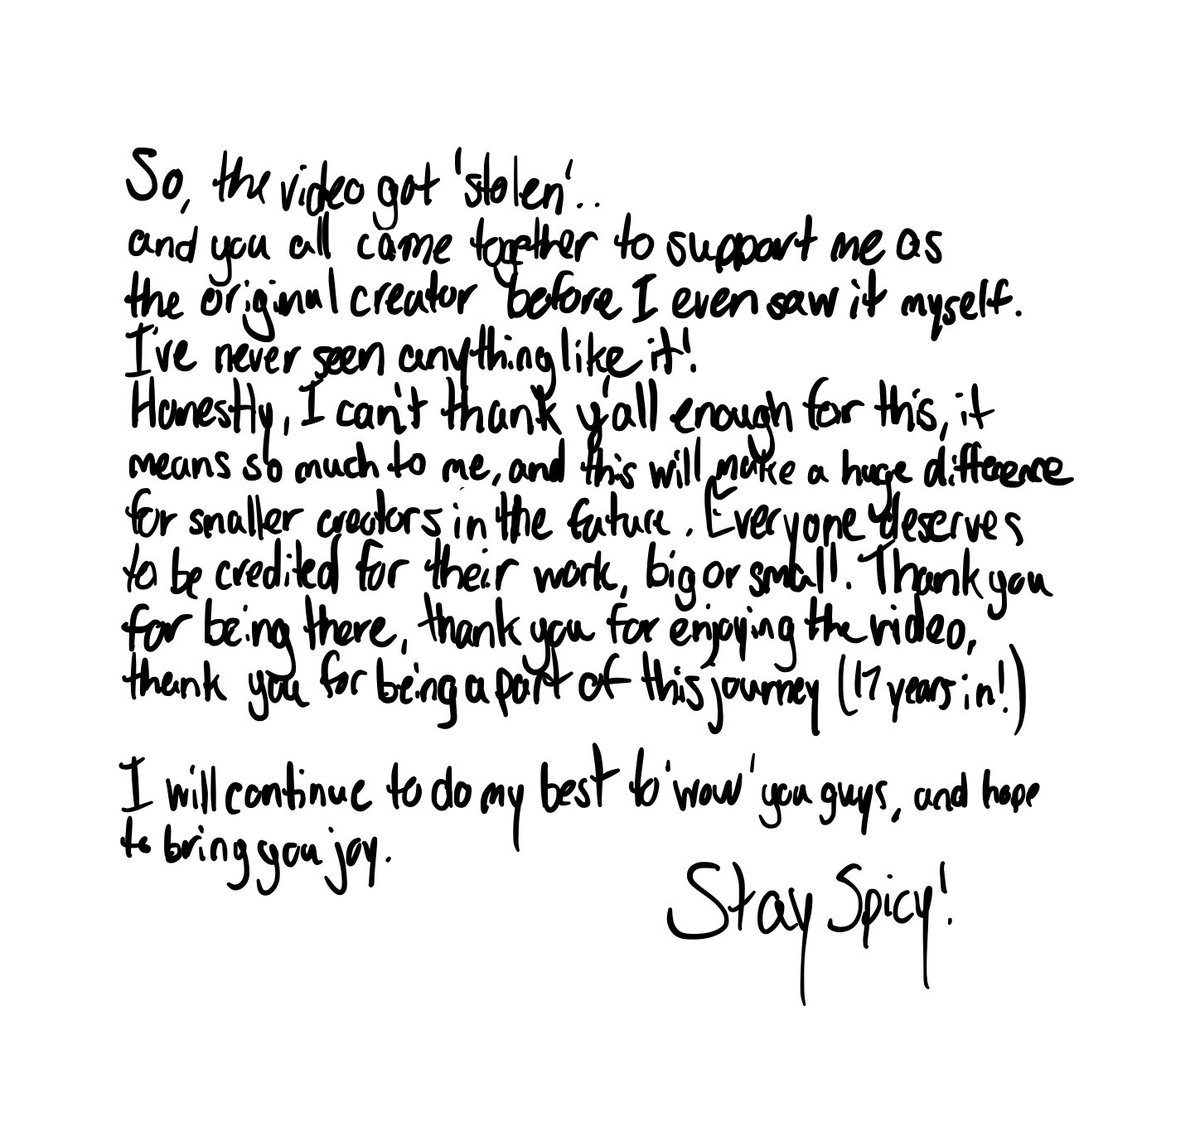 So, the video got 'stolen'..
and you all came together to support me as
the original creator before I even saw it myself.
I've never seen anything like it!
Honestly, I can't thank y'all enough for this, it
means so much to me, and this will make a huge difference
for smaller creators in the future. Everyone deserves
to be credited for their work, big or small. Thank you
for being there, thank you for enjoying the video,
thank you for being a part of this journey (17 years in!)
I will continue to do my best to 'wow' you guys, and hope
to bring you joy.
Stay Spicy!